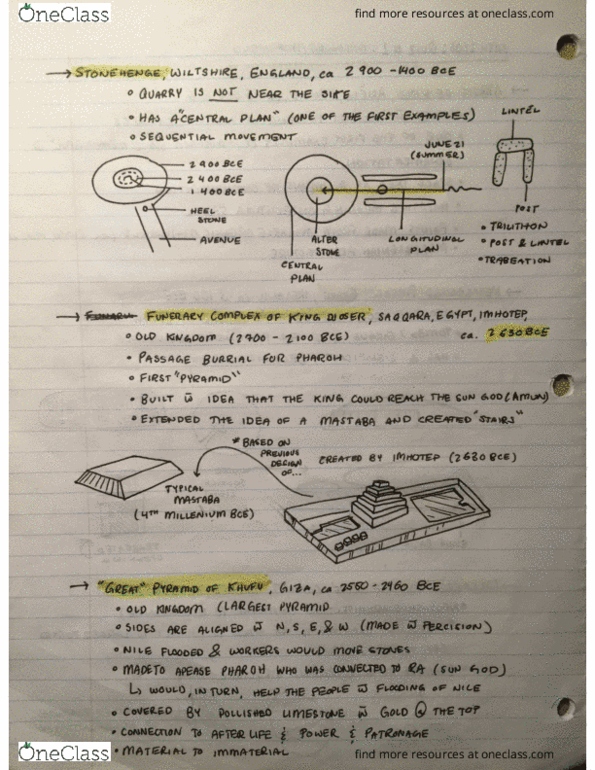 OneClass
find more resources at oneclass.com
→ STONEHENGE, WILTSHIRE, ENGLAND, ca 2900 - 1400 BCE
• QUARRY IS NOT NEAR THE SITE
• HAS A "CENTRAL PLAN" (ONE OF THE FIRST EXAMPLES)
• SEQUENTIAL MOVEMENT
2900 BCE
2400 BCE
1400 BCE
HEEL
STONE
AVENUE
JUNE 21
(SUMMER)
ALTER
STONE
LONGITUDINAL
PLAN
CENTRAL
PLAN
LINTEL
POST
• TRILITHON
• POST & LINTEL
• TRABEATION
→ FUNERARY COMPLEX OF KING DJOSER, SAQQARA, EGYPT, IMHOTEP,
ca. 2630 BCE
• OLD KINGDOM (2700 - 2100 BCE)
• PASSAGE BURRIAL FOR PHAROH
• FIRST "PYRAMID"
• BUILT w̄ IDEA THAT THE KING COULD REACH THE SUN GOD (AMUN)
• EXTENDED THE IDEA OF A MASTABA AND CREATED "STAIRS"
* BASED ON
PREVIOUS
DESIGN
OF...
CREATED BY IMHOTEP (2630 BCE)
TYPICAL
MASTABA
(4TH MILLENIUM BCE)
→ "GREAT" PYRAMID OF KHUFU, GIZA, ca 2550 - 2460 BCE
• OLD KINGDOM (LARGEST PYRAMID
• SIDES ARE ALIGNED w̄ N, S, E, & W (MADE w̄ PERCISION)
• NILE FLOODED & WORKERS WOULD MOVE STONES
• MADE TO APEASE PHAROH WHO WAS CONNECTED TO RA (SUN GOD)
↳ WOULD, IN TURN, HELP THE PEOPLE w̄ FLOODING OF NILE
• COVERED BY POLLISHED LIMESTONE w̄ GOLD @ THE TOP
• CONNECTION TO AFTER LIFE & POWER & PATRONAGE
• MATERIAL TO IMMATERIAL
OneClass
find more resources at oneclass.com